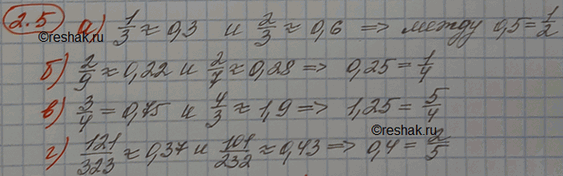 2.5 а) 1/3 ≈ 0,3 и 2/3 ≈ 0,6 => между 0,5 = 1/2
©reshak.ru
б) 2/9 ≈ 0,22 и 2/7 ≈ 0,28 => 0,25 = 1/4
в) 3/4 = 0,75 и 4/3 ≈ 1,9 => 1,25 = 5/4
©reshak.ru
г) 121/323 ≈ 0,37 и 101/232 ≈ 0,43 => 0,4 = 2/5